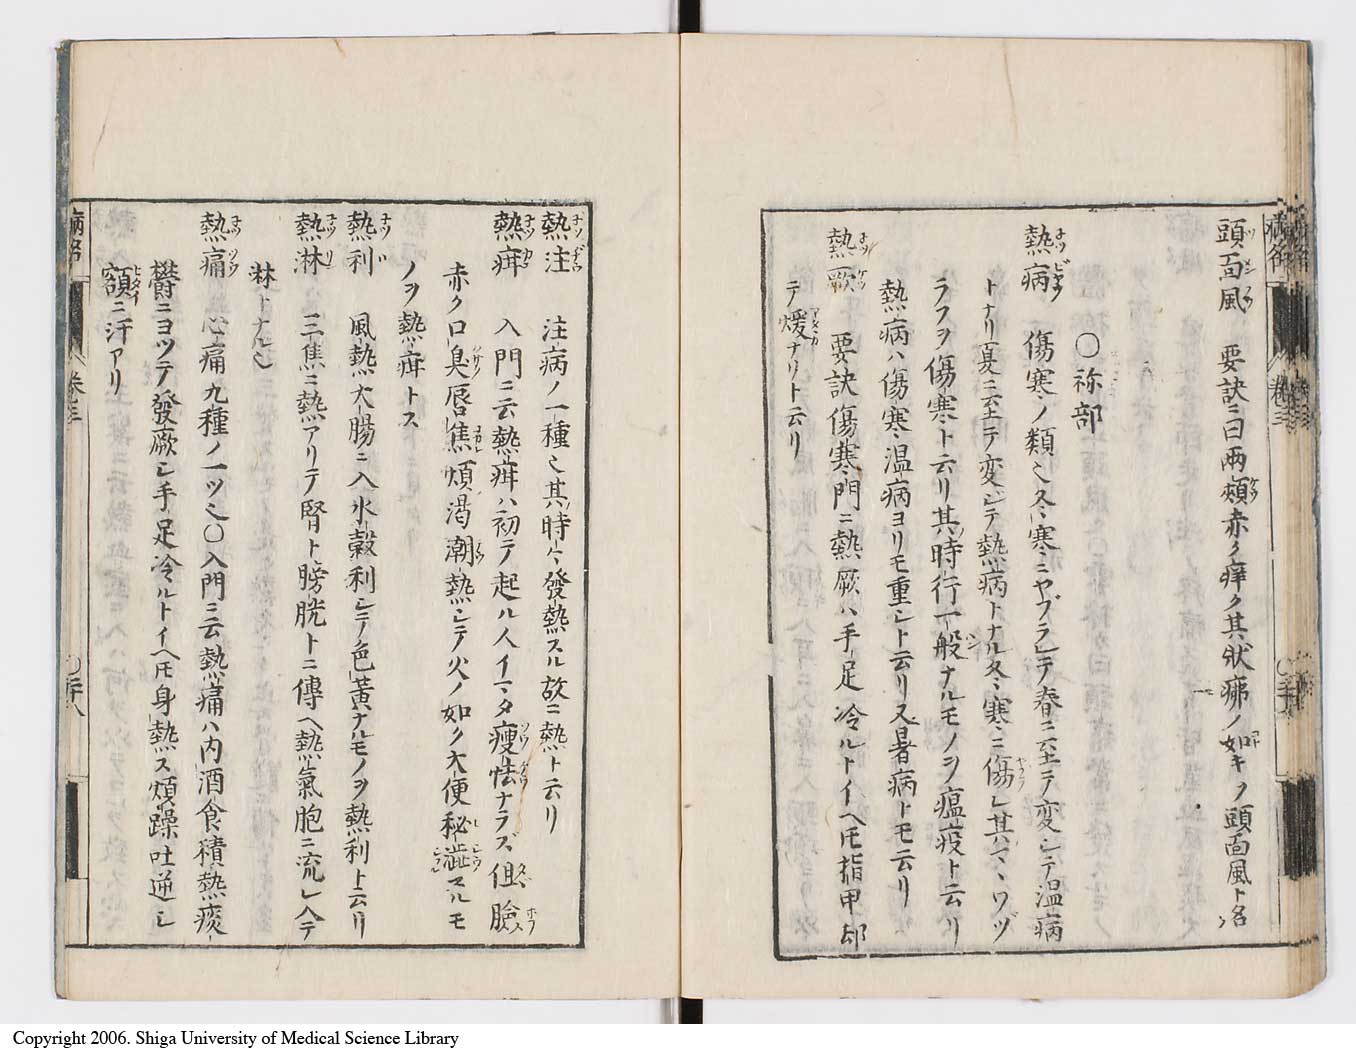 頭面風 要訣ニ曰兩頰赤ク痒ク其状痱ノ如キヲ頭面風ト名ク
〇祢部
熱病 傷寒ノ類也冬寒ニヤブラレテ春ニ至テ変シテ温病
トナリ夏ニ至テ変シテ熱病トナル冬寒ニ傷レ其マヽワヅ
ラフヲ傷寒ト云リ其時行一般ナルモノヲ瘟疫ト云リ
熱病ハ傷寒温病ヨリモ重シト云リ又暑病トモ云リ
熱厥 要訣傷寒門ニ熱厥ハ手足冷ルトイヘ𪜈指甲却
テ煖ナリト云リ
熱注 注病ノ一種也其時々發熱スル故ニ熱ト云リ
熱疳 入門ニ云熱疳ハ初テ起ル人イマタ瘦怯ナラズ但臉
赤ク口臭唇焦煩渇潮熱シテ火ノ如ク大便秘澁スルモ
ノヲ熱疳トス
熱利 風熱大腸ニ入水穀利シテ色黄ナルモノヲ熱利ト云リ
熱淋 三焦ニ熱アリテ腎ト膀胱トニ傳ヘ熱氣胞ニ流レ入テ
淋トナル也
熱痛 心痛九種ノ一ツ也〇入門ニ云熱痛ハ内酒食積熱痰
欝ニヨツテ發厥シ手足冷ルトイヘ𪜈身熱ス煩躁吐逆シ
額ニ汗アリ
病名 卷三 〇二十八
Copyright 2006. Shiga University of Medical Science Library